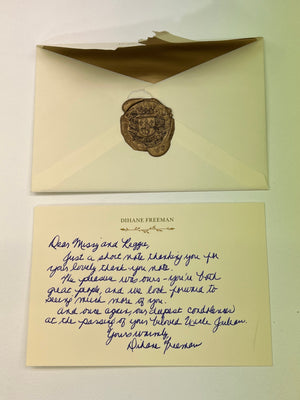 DIHANE FREEMAN
Dear Missy and Reggie,
Just a short note thanking you for
your lovely thank you note.
The pleasure was ours - you're both
great people, and we look forward to
seeing much more of you.
And once again our deepest condolences
at the passing of your beloved Uncle Julian.
Yours warmly,
Dihane Freeman